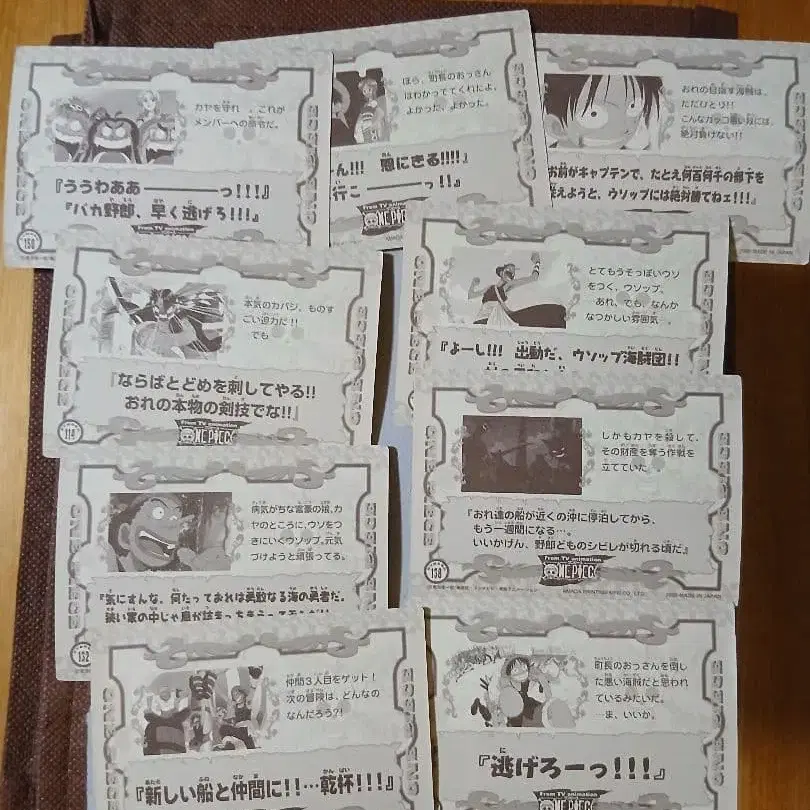 カヤを守れ 、これが
メンバーへの命令だ。
『ううわああ――――っ!!!』
『バカ野郎、早く逃げろ!!!』
From TV animation
150
ほら、町長のおっさん
はわかっててくれたよ。
よかった、よかった。
ん!!! 恩にきる!!!!』
行こ―――っ!!』
From TV animation
ONE PIECE
おれの目指す海賊は、
ただひとり!!
こんなカッコ悪い奴には、
絶対負けない!!
お前がキャプテンで、たとえ何百何千の部下を
従えようと、ウソップには絶対勝てねェ!!!』
MADE IN JAPAN
本気のカバジ、ものす
ごい迫力だ!!
でも
『ならばとどめを刺してやる!!
おれの本物の剣技でな!!』
From TV animation
ONE PIECE
とてもうそっぽいウソ
をつく、ウソップ。
あれ、でも、なんか
なつかしい雰囲気…。
『よーし!!! 出動だ、ウソップ海賊団!!
しかもカヤを殺して、
その財産を奪う作戦を
立てていた
『おれ達の船が近くの沖に停泊してから、
もう一週間になる…。
いいかげん、野郎どものシビレが切れる頃だ』
From TV animation
ONE PIECE
138
MADE IN JAPAN
病気がちな富豪の娘、カ
ヤのところに、ウソをつ
きにいくウソップ。元気
づけようと頑張ってる。
『気にすんな、何たっておれは勇敢なる海の勇者だ。
132
仲間3人目をゲット!
次の冒険は、どんなの
なんだろう?!
『新しい船と仲間に!!…乾杯!!!』
町長のおっさんを倒し
た悪い海賊だと思われ
ているみたいだ。
…ま、いいか。
『逃げろーっ!!!』
From TV animation
ONE PIECE